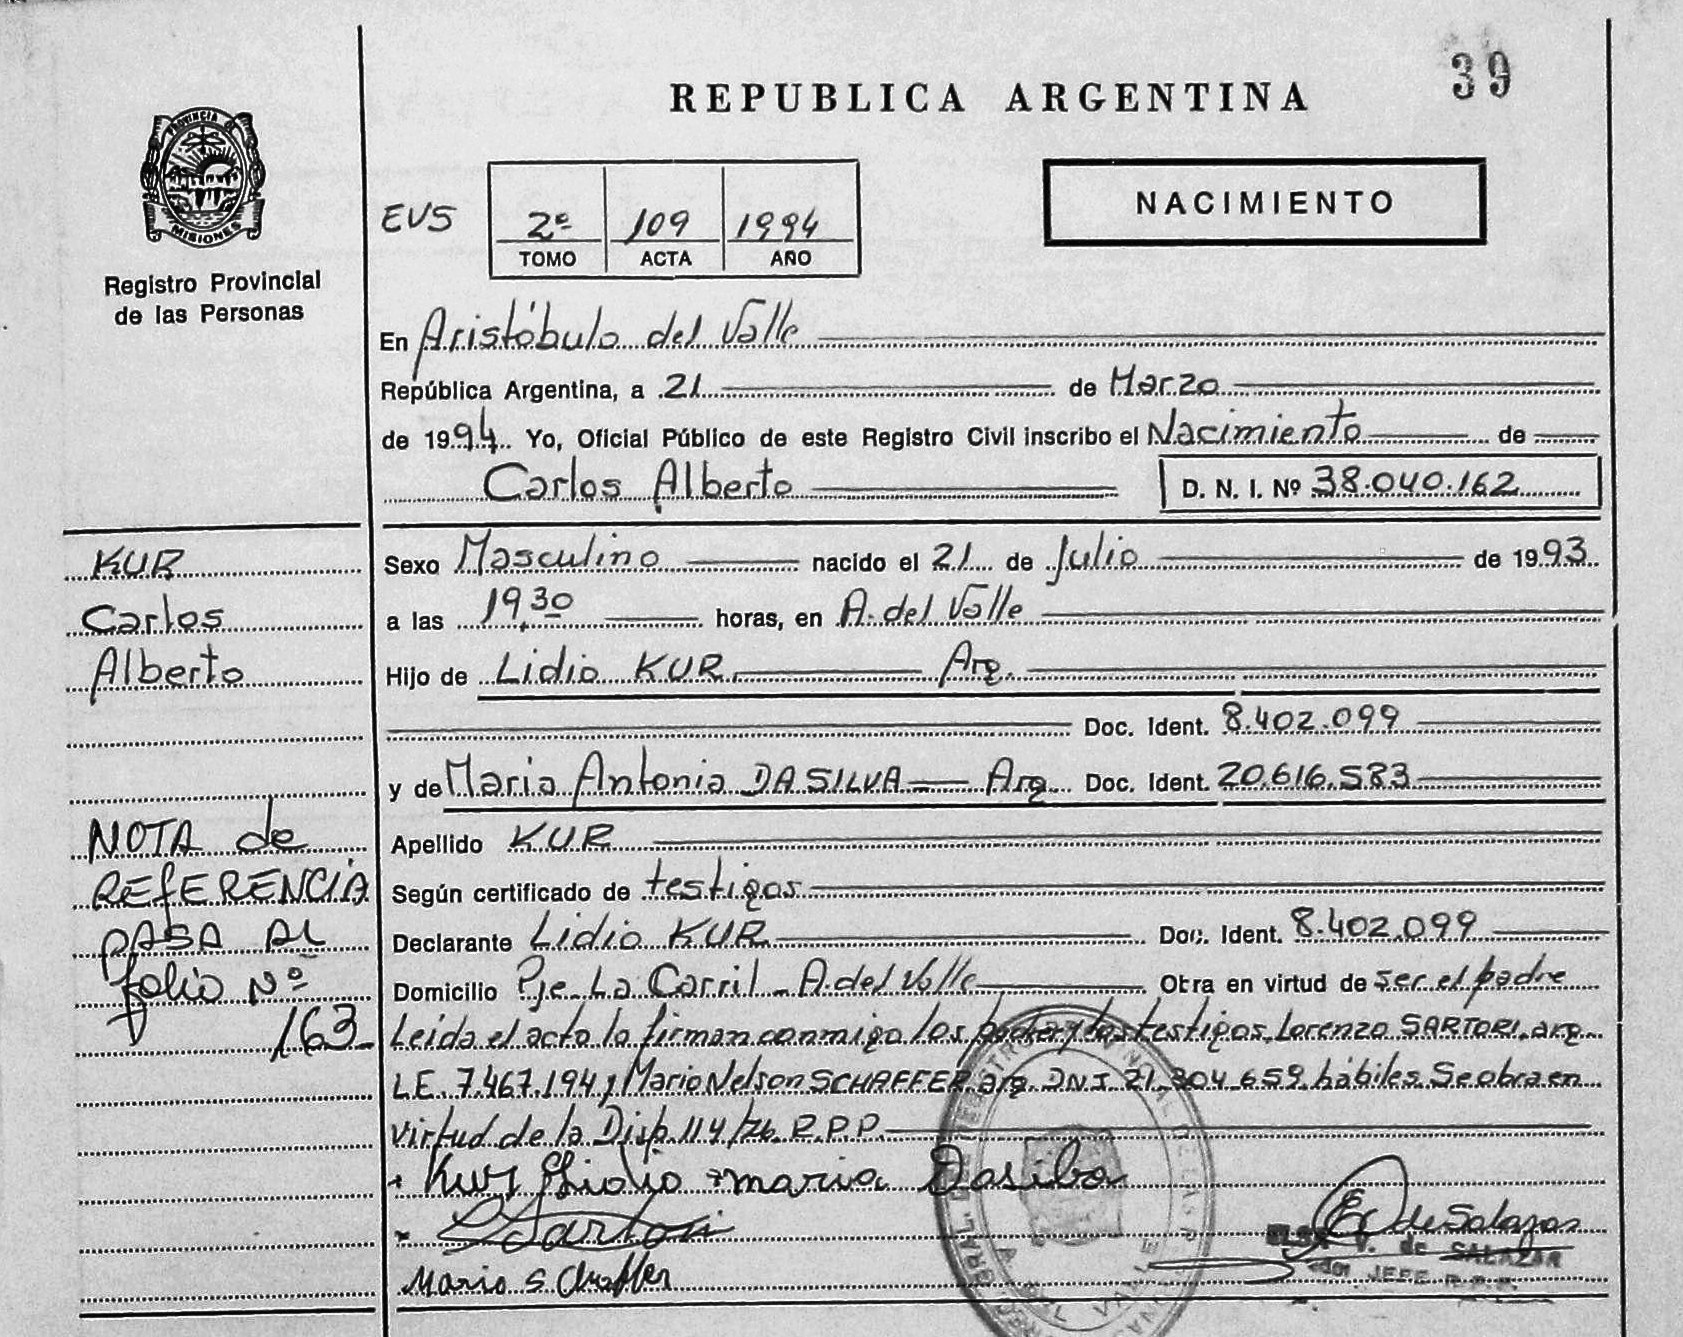 39
REPUBLICA ARGENTINA
PROVINCIA DE
MISIONES
Registro Provincial
de las Personas
EVS
2º 109 1994
TOMO ACTA AÑO
NACIMIENTO
En Aristóbulo del Valle
República Argentina, a 21 de Marzo
de 1994. Yo, Oficial Público de este Registro Civil inscribo el Nacimiento de
Carlos Alberto D. N. I. Nº 38.040.162
KUR
Carlos
Alberto
Sexo Masculino nacido el 21 de Julio de 1993
a las 19,30 horas, en A. del Valle
Hijo de Lidio KUR Arg.
Doc. Ident. 8.402.099
y de Maria Antonia DA SILVA Arg Doc. Ident. 20.616.583
Apellido KUR
Según certificado de testigos
Declarante Lidio KUR Doc. Ident. 8.402.099
Domicilio Pje La Carril - A. del Valle Otra en virtud de ser el padre
NOTA de
REfERENCIA
PASA AL
folio Nº
163
Leida el acta la firman conmigo los padre y los testigos Lorenzo SARTORI, arg
L.E. 7.467.194 y Mario Nelson SCHAFFER arg DNI 21.304.659 hábiles. Se obra en
virtud de la Disp. 114/76 R.P.P.
Kur Lidio maria Dasilva
Sartori
Mario Schaffer
E de Salazar
V. de SALAZAR
JEFE R.P.P.